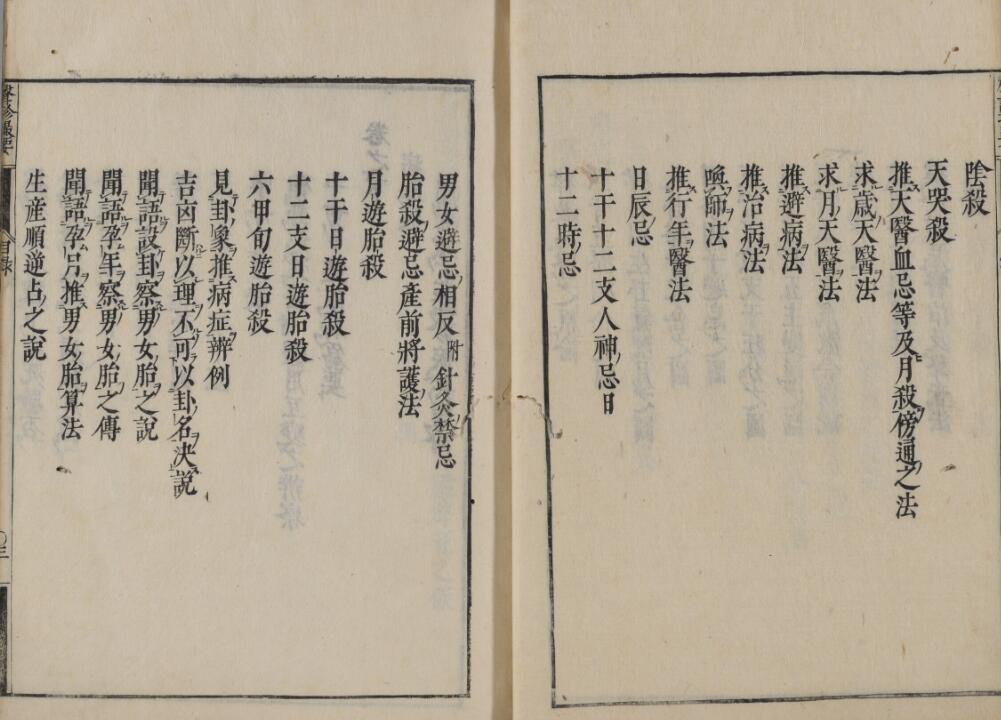 陰殺
天哭殺
推天醫血忌等及月殺傍通之法
求歳天醫法
求月天醫法
推避病法
推治病法
喚師法
推行年醫法
日辰忌
十干十二支人神忌日
十二時忌
男女避忌相反附針灸禁忌
胎殺避忌產前將護法
月遊胎殺
十干日遊胎殺
十二支日遊胎殺
六甲旬遊胎殺
見卦象推病症辨例
吉凶斷以理不可以卦名決說
聞語設卦察男女胎之說
聞語孕年察男女胎之傳
聞語孕月推男女胎算法
生産順逆占之說
目録
三